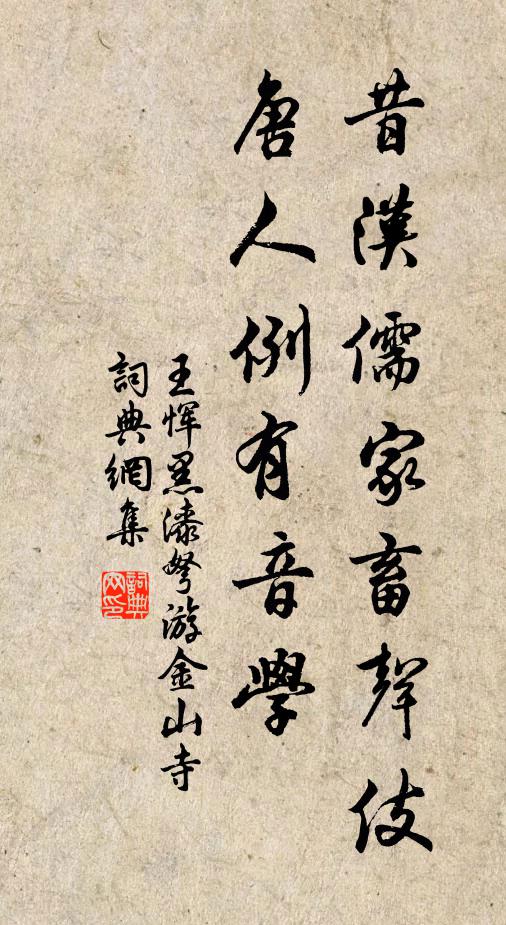 昔漢儒家畜聲伎
唐人例有音學
王惲黑漆弩游金山寺
詞典網集
詞典网印